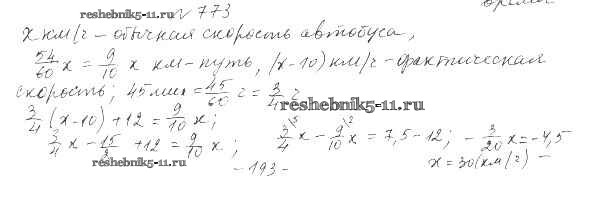 время
reshebnik5-11.ru № 773
x км/ч – обычная скорость автобуса,
54/60 x = 9/10 x км – путь, (x-10) км/ч – фактическая
скорость; 45 мин = 45/60 ч = 3/4 ч
reshebnik5-11.ru
3/4 (x-10) + 12 = 9/10 x;
3/4 x - 15/2 + 12 = 9/10 x; 3/4 x - 9/10 x = 7,5 - 12; - 3/20 x = -4,5
reshebnik5-11.ru x = 30 (км/ч) –
- 193 -